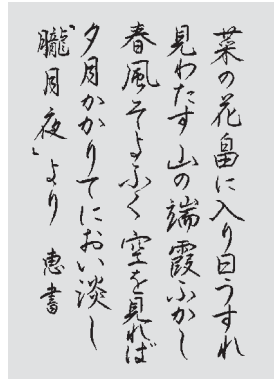 菜の花畠に入り日うすれ
見わたす山の端霞ふかし
春風そよふく空を見れば
夕月かかりてにおい淡し
「朧月夜」より 恵書